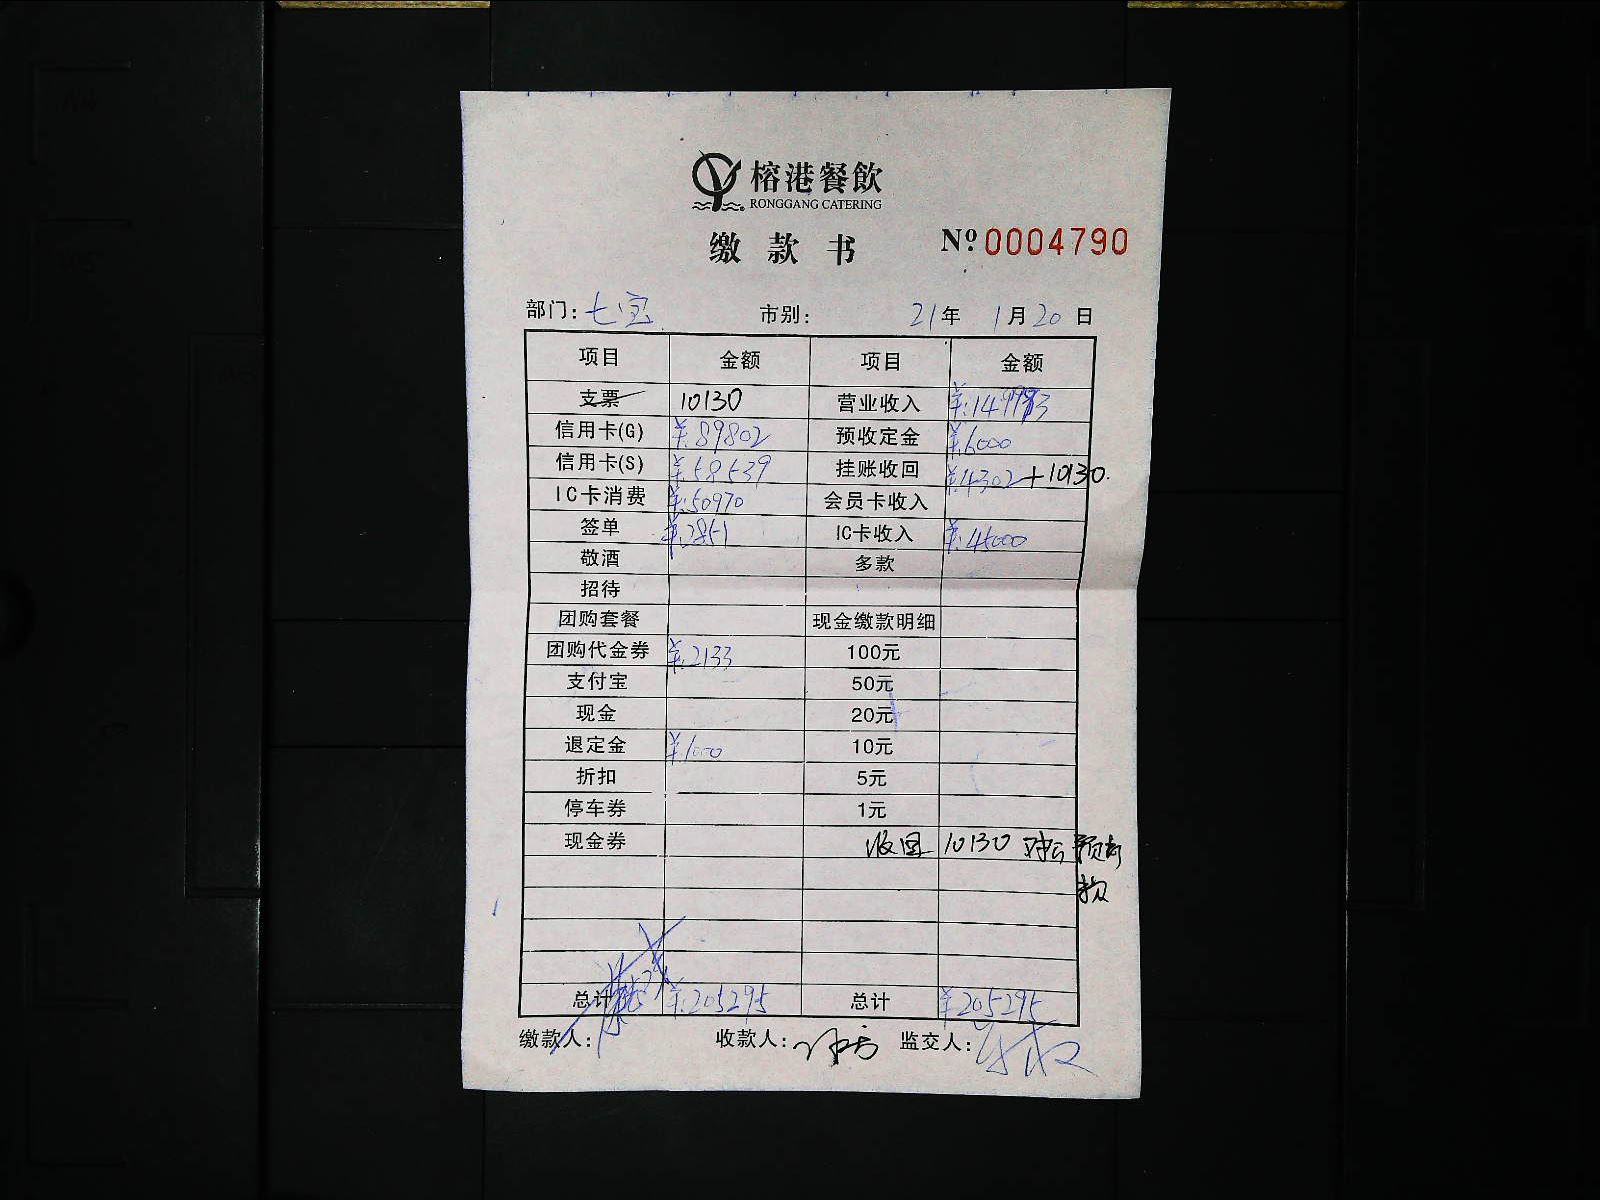 榕港餐飲
RONGGANG CATERING
缴款书
Nº 0004790
部门: 七宝 市别: 21年 1月20日
项目 金额 项目 金额
支票 10130 营业收入 ¥:149993
信用卡(G) ¥:89802 预收定金 ¥:6000
信用卡(S) ¥:58539 挂账收回 ¥:4302+10130.
IC卡消费 ¥:50970 会员卡收入
签单 ¥:2851 IC卡收入 ¥:45000
敬酒 多款
招待
团购套餐 现金缴款明细
团购代金券 ¥:2133 100元
支付宝 50元
现金 20元
退定金 ¥:1000 10元
折扣 5元
停车券 1元
现金券 收回 10130 对公 预
款
总计 ¥:205295 总计 ¥205295
缴款人: 收款人: 监交人: